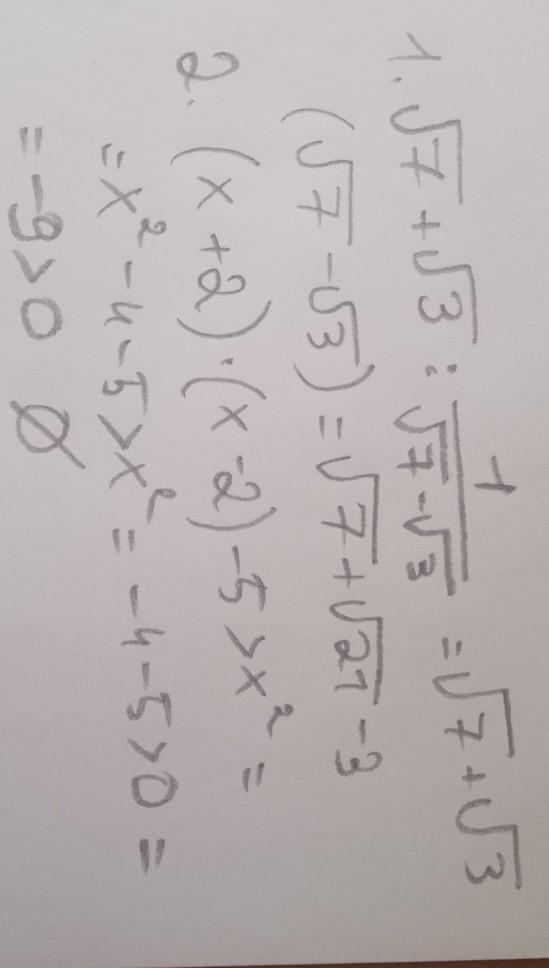 1. √7 + √3 : 1/(√7-√3) = √7 + √3
(√7 - √3) = √7 + √21 - 3
2. (x + 2) · (x - 2) - 5 > x² =
= x² - 4 - 5 > x² = - 4 - 5 > 0 =
= -9 > 0 ∅